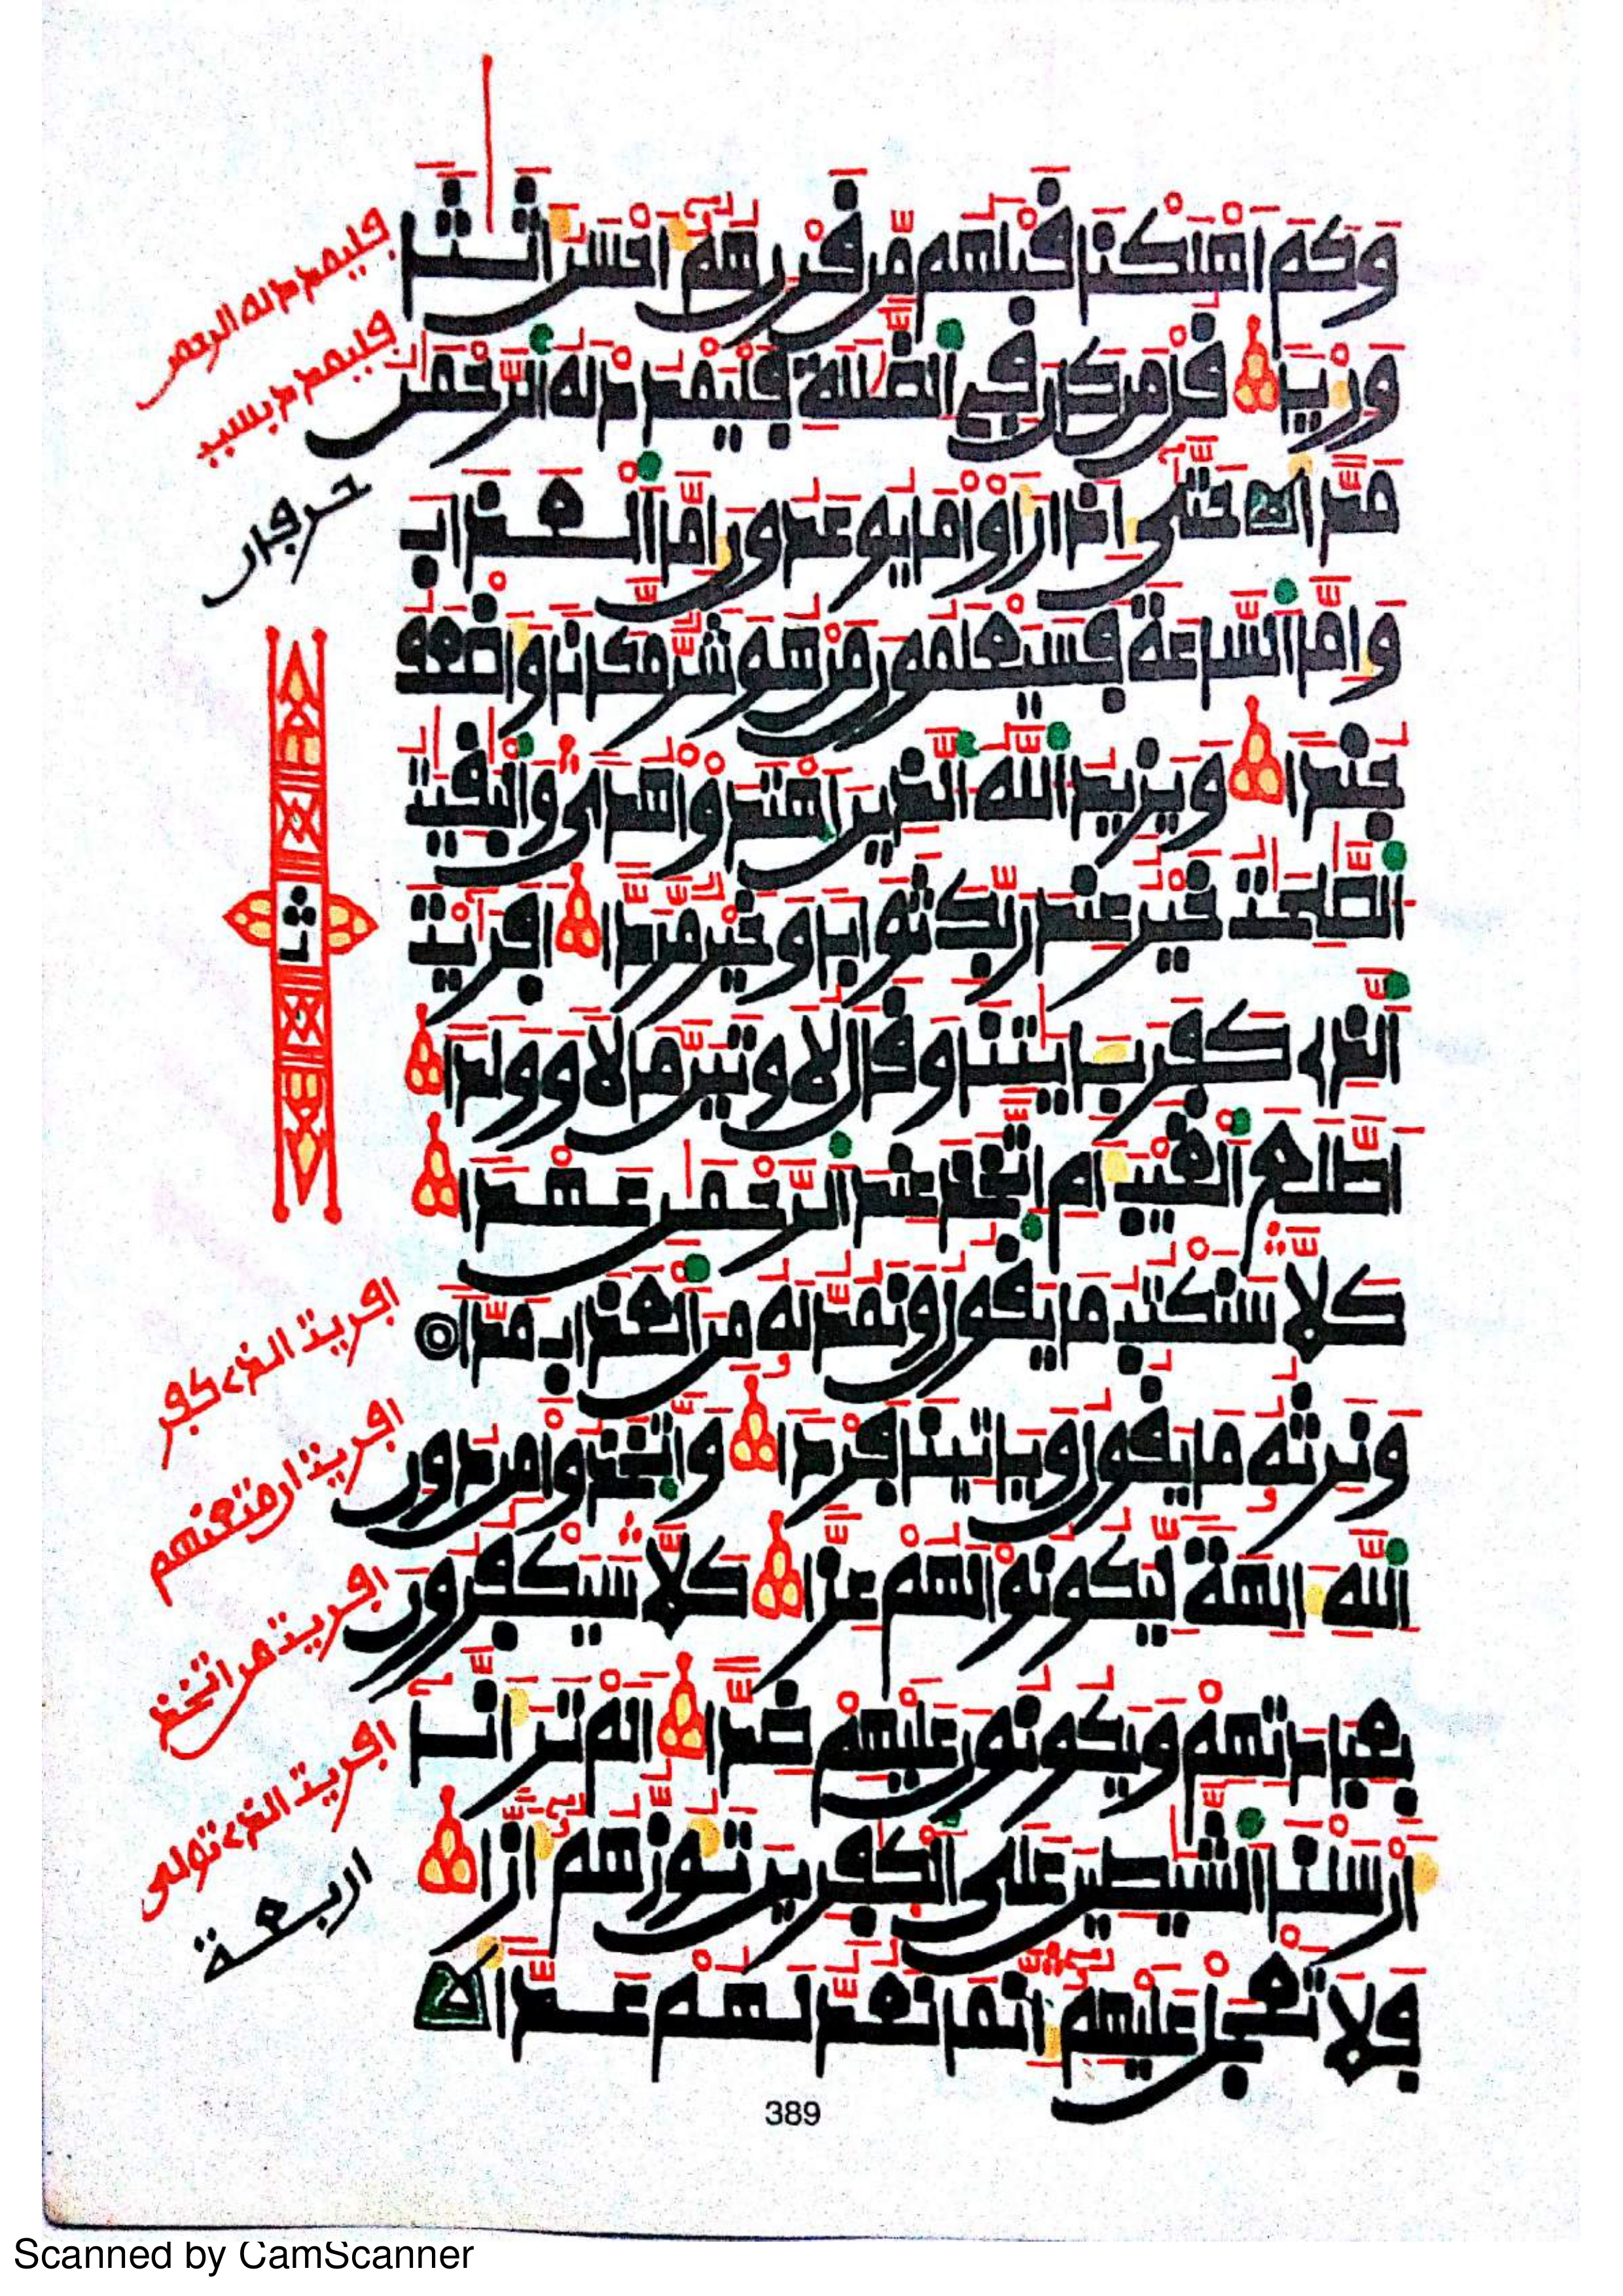 وَكَمَ اَهْلَكْنَا قَبْلَهُم مِّن قَرْنٍ هُمُۥٓ أَحْسَنُ أَثَٰثاً
وَرِءْياً قُلْ مَن كَانَ فِي اِ۬لضَّلَٰلَةِ فَلْيَمْدُدْ لَهُ اُ۬لرَّحْمَٰنُ
مَدّاً حَتَّىٰٓ إِذَا رَأَوْاْ مَا يُوعَدُونَ إِمَّا اَ۬لْعَذَابَ
وَإِمَّا اَ۬لسَّاعَةَ فَسَيَعْلَمُونَ مَنْ هُوَ شَرٌّ مَّكَاناً وَأَضْعَفُ
جُنداً وَيَزِيدُ اُ۬للَّهُ اُ۬لذِينَ اَ۪هْتَدَوْاْ هُدىً وَالْبَٰقِيَٰتُ
اُ۬لصَّٰلِحَٰتُ خَيْرٌ عِندَ رَبِّكَ ثَوَاباً وَخَيْرٌ مَّرَدّاً اَفَرَٰيْتَ
اَ۬لذِے كَفَرَ بِـَٔايَٰتِنَا وَقَالَ لَأُوتَيَنَّ مَالاً وَوَلَداً
اَطَّلَعَ اَ۬لْغَيْبَ أَمِ اِ۪تَّخَذَ عِندَ اَ۬لرَّحْمَٰنِ عَهْداً
كَلَّا سَنَكْتُبُ مَا يَقُولُ وَنَمُدُّ لَهُۥ مِنَ اَ۬لْعَذَابِ مَدّاً
وَنَرِثُهُۥ مَا يَقُولُ وَيَاتِينَا فَرْداً وَاتَّخَذُواْ مِن دُونِ
اِ۬للَّهِ ءَالِهَةً لِّيَكُونُواْ لَهُمْ عِزّاً كَلَّا سَيَكْفُرُونَ
بِعِبَادَتِهِمْ وَيَكُونُونَ عَلَيْهِمْ ضِدّاً اَلَمْ تَرَ أَنَّآ
أَرْسَلْنَا اَ۬لشَّيَٰطِينَ عَلَى اَ۬لْكَٰفِرِينَ تَؤُزُّهُمُۥٓ أَزّاً
فَلَا تَعْجَلْ عَلَيْهِمُۥٓ إِنَّمَا نَعُدُّ لَهُمْ عَدّاً
فليمدد له الرحمن
فليمدد بسبب
حرفان
ثمن
افريت الذے كفر
افريت ان متعنهم
افريت من اتخذ
افريت الذے تولى
اربعة
389
Scanned by CamScanner